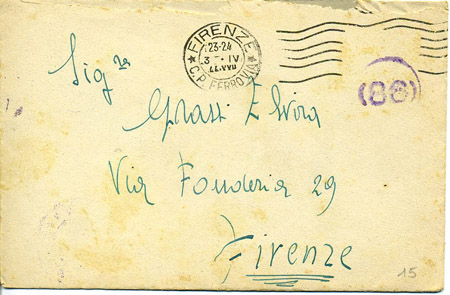 FIRENZE
23-24
3 · IV
C.P. FERROVIA
(86)
Sig.ra
Grassi Elvira
Via Fonderia 29
Firenze
15